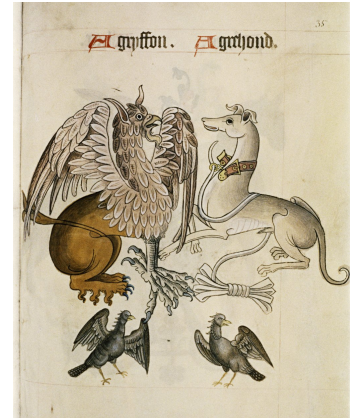 35
A gryffon. A grehond.